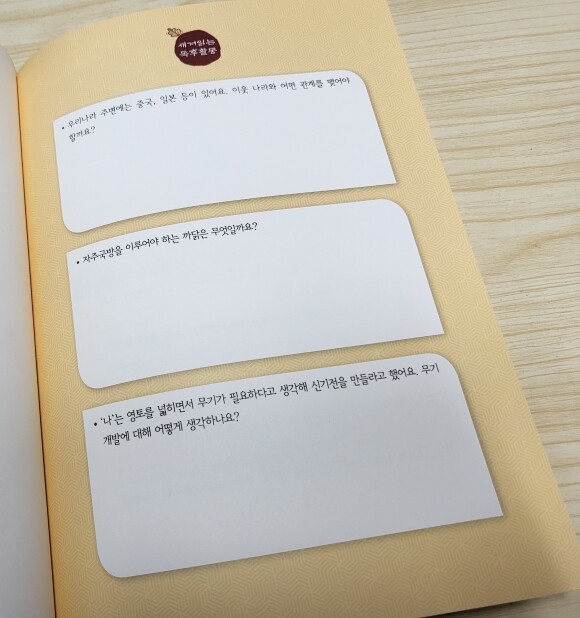 새겨읽는
독후활동
• 우리나라 주변에는 중국, 일본 등이 있어요. 이웃 나라와 어떤 관계를 맺어야
할까요?
• 자주국방을 이루어야 하는 까닭은 무엇일까요?
• '나'는 영토를 넓히면서 무기가 필요하다고 생각해 신기전을 만들라고 했어요. 무기
개발에 대해 어떻게 생각하나요?